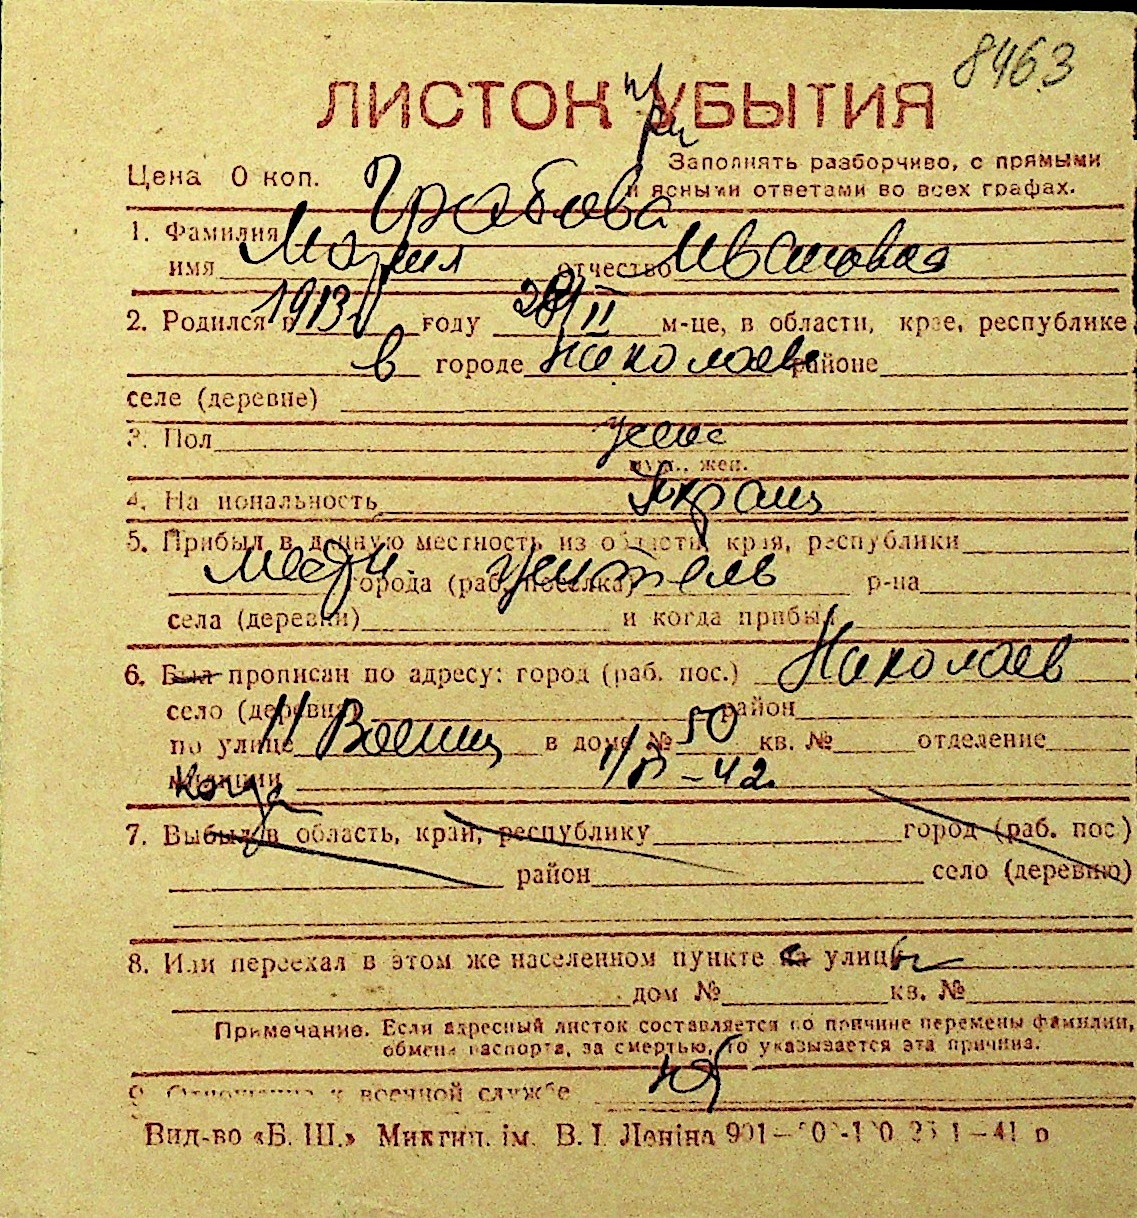 8463
ЛИСТОК при УБЫТИЯ
Цена 0 коп.
Заполнять разборчиво, с прямыми
и ясными ответами во всех графах.
1. Фамилия Грабова
имя Мария отчество Ивановна
2. Родился в 1913 году 28/II м-це, в области, крае, республике
в городе Николаеве районе
селе (деревне)
3. Пол женс
муж., жен.
4. Национальность Украин
5. Прибыл в данную местность из области, края, республики
города (раб. поселка) учитель р-на
села (деревни) и когда прибыл
6. Был прописан по адресу: город (раб. пос.) Николаев
село (деревня) район
по улице 11 Военн в доме № 50 кв. № отделение
милиции 1/II-42.
Когда
7. Выбыл в область, край, республику город (раб. пос.)
район село (деревню)
8. Или переехал в этом же населенном пункте с улицы
дом № кв. №
Примечание. Если адресный листок составляется по причине перемены фамилии,
обмена паспорта, за смертью, то указывается эта причина.
9. Отношение к военной службе
Вид-во «Б. Ш.» Микгип. ім. В. І. Леніна